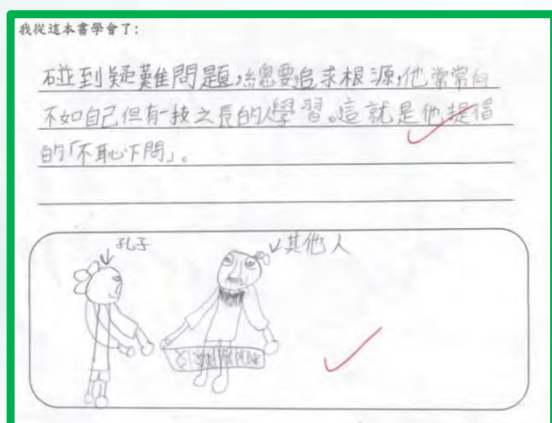 我從這本書學會了：
碰到疑難問題，總要追求根源，他常常向
不如自己但有一技之長的人學習。這就是他提倡
的「不恥下問」。
孔子
其他人